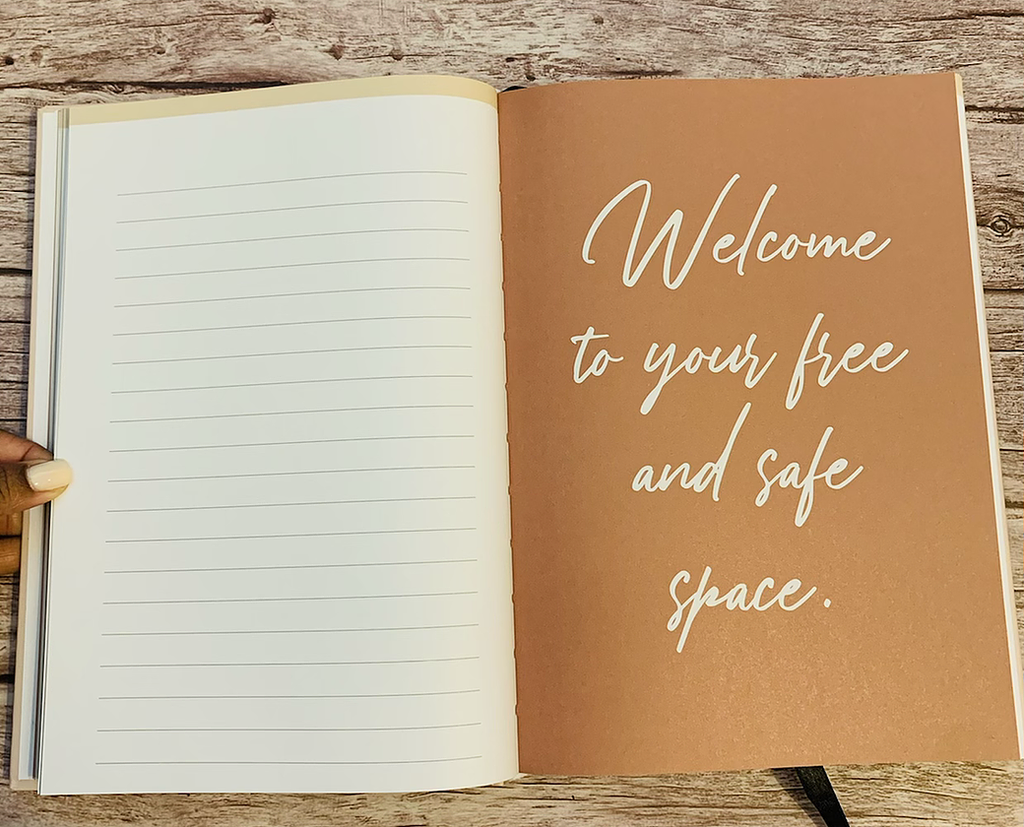 Welcome
to your free
and safe
space.